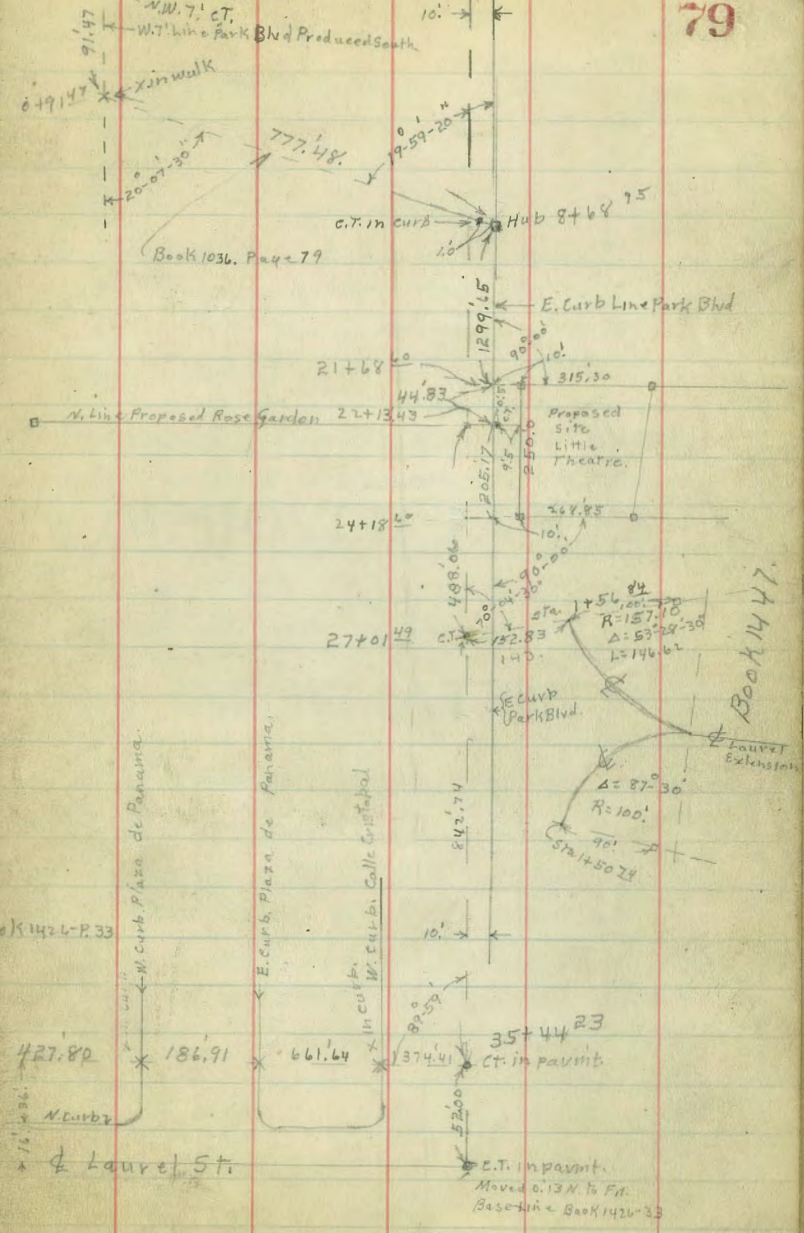 79
N.W. 7' C.T.
W. 7' Line Park Blvd Produced South
10.'
91.47
0+91 47
x in walk
777.'48.
19°-59'-20"
20°-07'-30"
C.T. in curb
Hub 8+68 95
1.0'
Book 1036. Page 79
1299.'65
E. Curb Line Park Blvd
90°-00'
10.'
21+68 60
315.'30
44.'83
N. Line Proposed Rose Garden
22+13.43
9.'5
250.0
Proposed
Site
Little
Theatre.
205.'17
24+18 60
268.'85
10.'
488.06
1+56 84
R=157.'18
Δ=53°-28'-30"
L=146.62
27+01 49
C.T.
152.83
Book 1447.
E Curb
Park Blvd.
Laurel
Extension
Δ= 87°-30'
R=100.'
90'
Sta 1+50 74
842.'74
N. Curb. Plaza de Panama.
E. Curb. Plaza de Panama.
x in curb.
W. Curb. Calle Cristobal
ok 1426-P. 33
10.'
89°-59'
35+44 23
427.'80
186.'91
661.'64
1374.'41
Ct. in pavmt.
52.00'
N. Curb
16.'
36.'
℄ Laurel St.
C.T. in pavmt.
Moved 0.'13 N. to Fit.
Base Line Book 1426-33